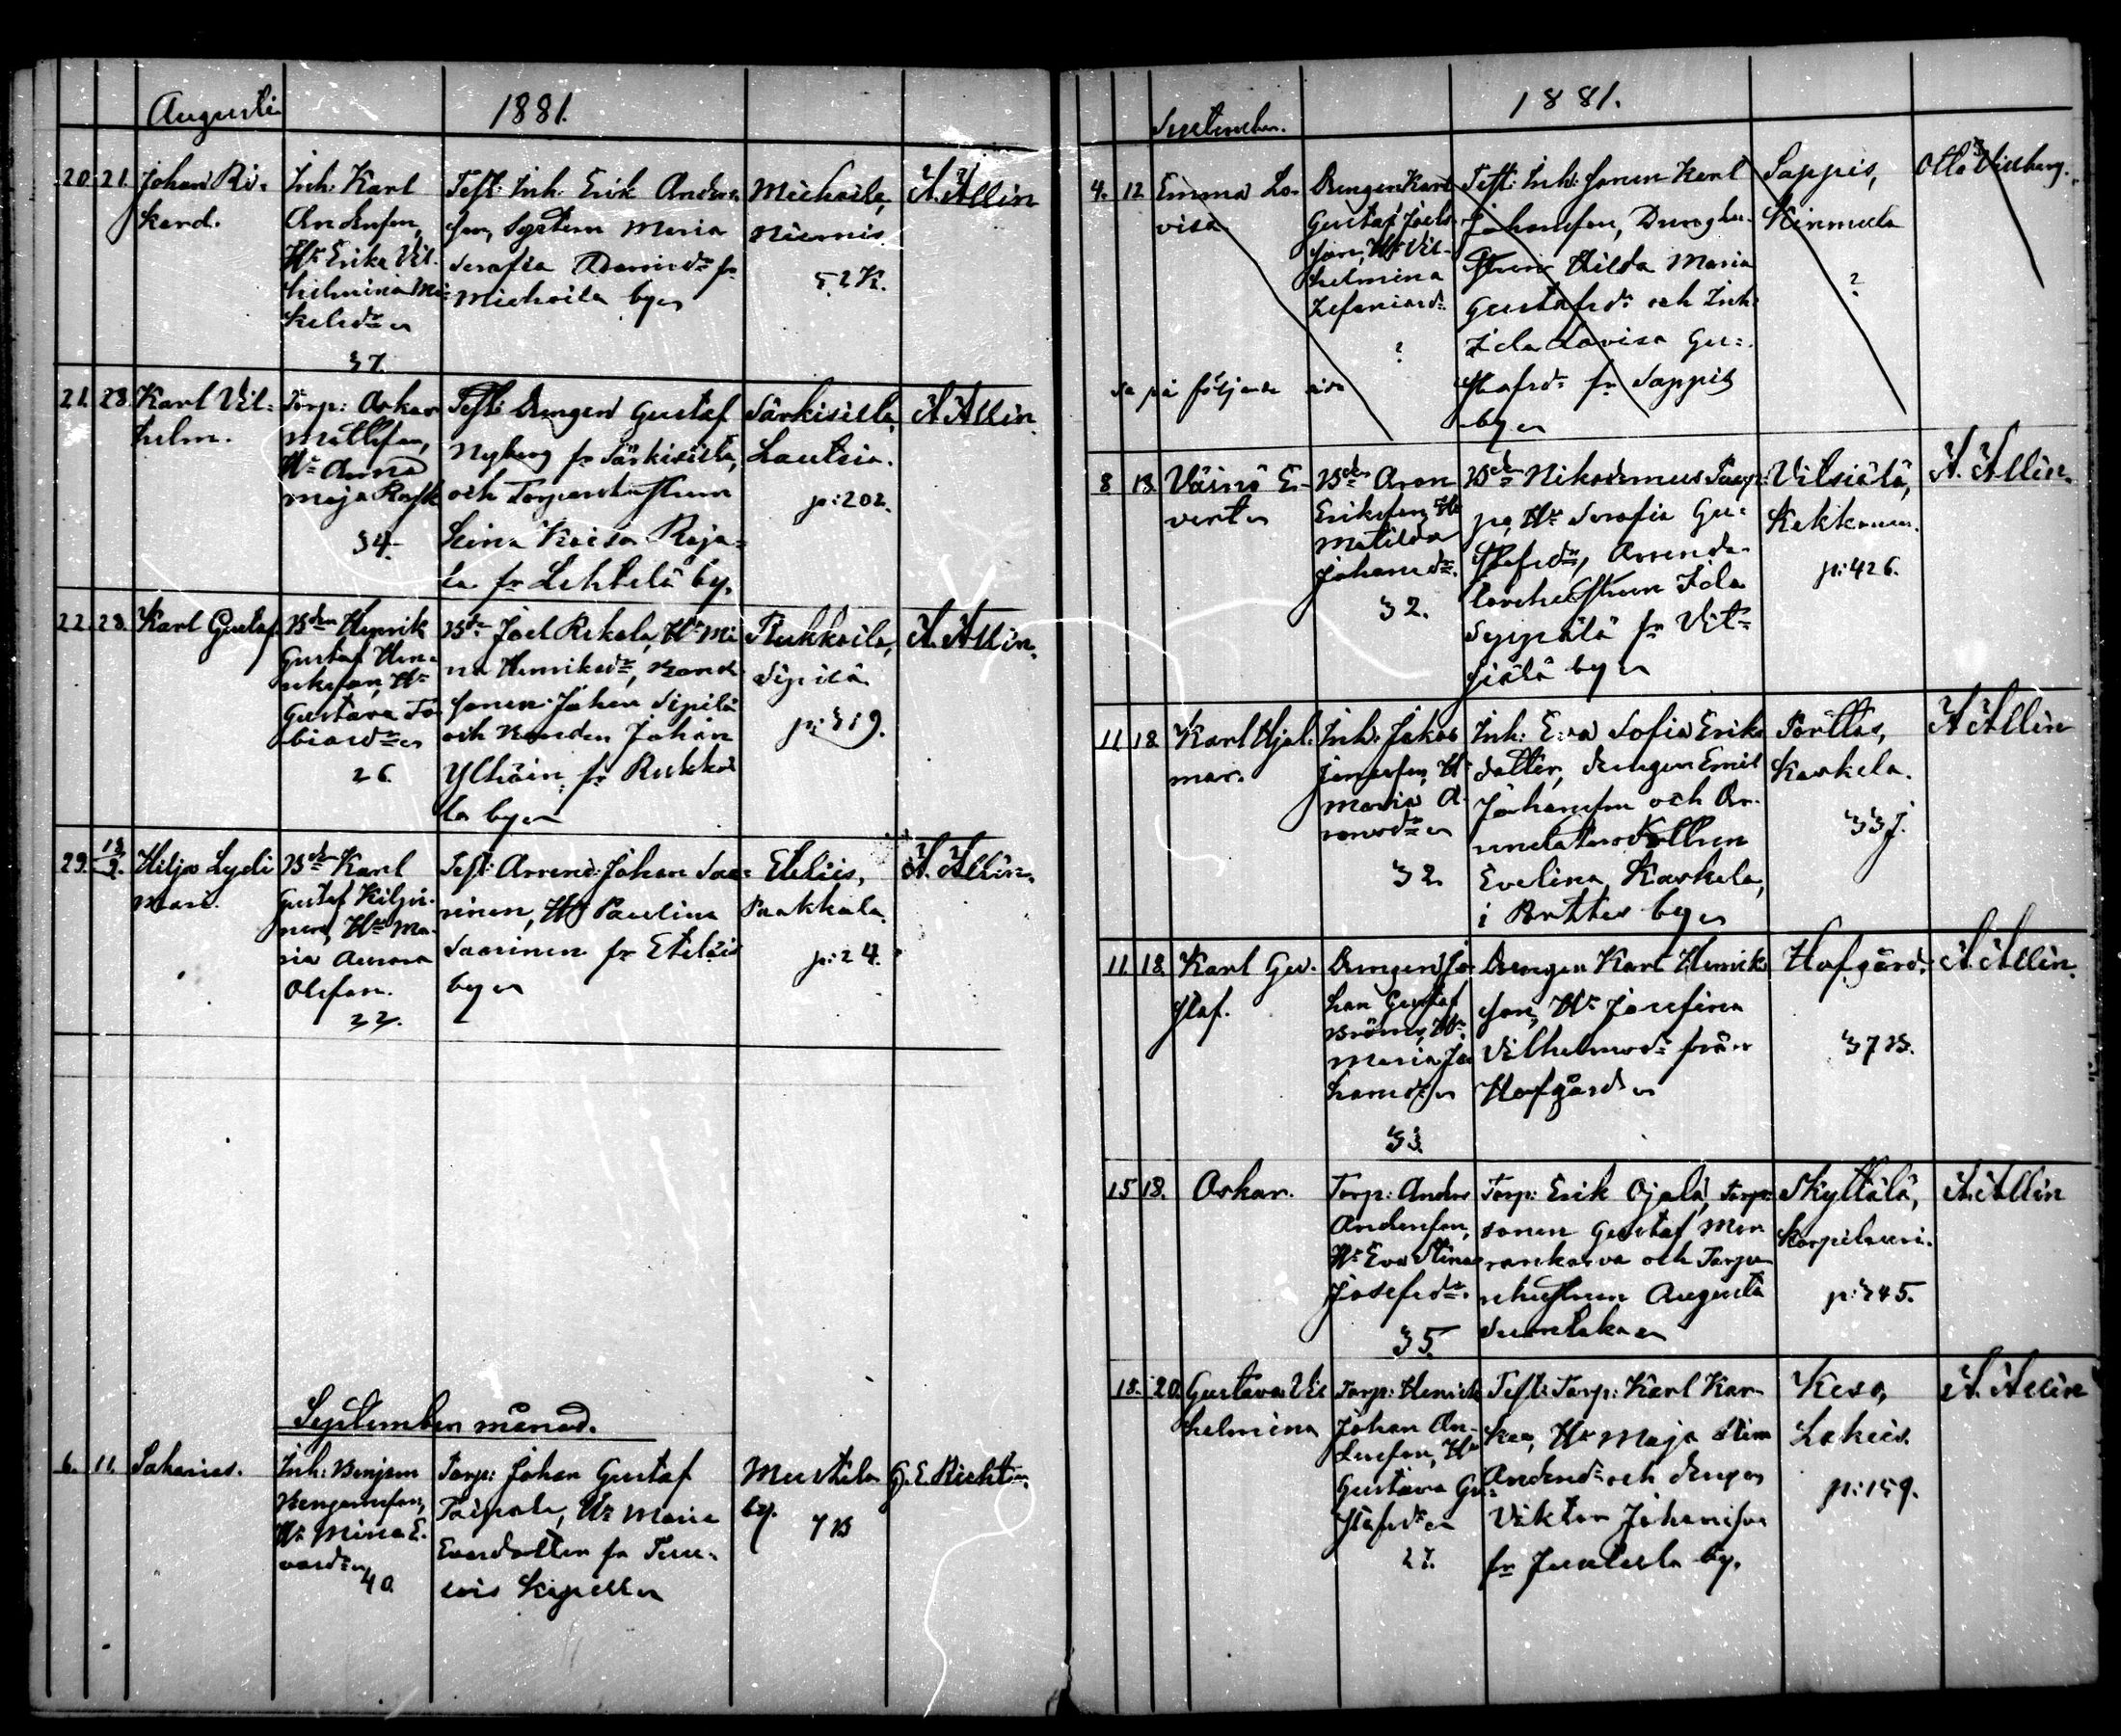 Augusti 1881.
20. 21. Johan Ri-
kard.
Inh: Karl
Andersson,
Hu Erika Vil-
helmina Mi-
kelsdr
37.
Test: Inh: Erik Anders-
son, Systern Maria
Serafia Adamsdr fr
Michoila by
Michoila,
Niemis.
52 K.
A. Allin
21. 28. Karl Vil-
helm.
Torp: Oskar
Mattsson,
Hu Anna
Maja Rask
34.
Test: Drengen Gustaf
Nyberg fr Särkisilta,
och Torparehustrun
Leina Kaisa Raja-
la fr Lehtelä by.
Särkisilta,
Lautsia.
p: 202.
A. Allin
22. 28. Karl Gustaf.
Bden Henrik
Gustaf Hen-
riksson, Hu
Gustava To-
biasdr
26.
Bdn Joel Rekola, Hu Mi-
na Henriksdr, Bonde-
sonen Johan Sipilä
och Bonden Johan
Ylhäin fr Rukkoi-
la by
Rukkoila,
Sipilä
p: 319.
A. Allin.
29. 18/9. Hilja Lydi
Maria.
Bdn Karl
Gustaf Kilpi-
nen, Hu Ma-
ria Aurora
Olsson.
22.
Test: Arrend: Johan Saa-
rinen, Hu Paulina
Saarinen fr Eteläis
by
Eteläis,
Paakkala.
p: 24.
A. Allin.
September månad.
6. 11. Sakarias.
Inh: Benjam
Benjaminsson,
Hu Mina E-
vardr
40.
Torp: Johan Gustaf
Taipale, Hu Maria
Evasdotter fr Tuu-
lois Kapell
Mustila
by.
7 B
G. E. Richt
September. 1881.
4. 12. Emma Lo-
visa
Drengen Karl
Gustaf Joels-
son, Hu Vil-
helmina
Zefaniasdr
?
Test: Inh: sonen Karl
Johansson, Drenghu-
strun Hilda Maria
Gustafsdr och Inh:
Ida Lovisa Gu-
stafsdr fr Sappis
by
Sappis,
Kinnula
?
Otto Vidberg.
se på följande sida
8. 18. Väinö E-
vert
Bdn Aron
Eriksson, Hu
Matilda
Johansdr.
32.
Bdn Nikodemus Seep-
pä, Hu Serafia Gu-
stafsdr, Arrenda-
torehustrun Ida
Seppälä fr Vit-
siälä by
Vitsiälä,
Kekkonen.
p: 426.
A. Allin.
11. 18. Karl Hjal-
mar.
Inh: Jakob
Jonasson, Hu
Maria A-
ronsdr
32.
Inh: Eva Sofia Eriks-
dotter, drengen Emil
Johansson och Ar-
rendatorsdottren
Evelina Kaskela,
i Porttas by
Porttas,
Kaskela.
337.
A. Allin
11. 18. Karl Gu-
staf.
Drengen Jo-
han Gustaf
Broms, Hu
Maria Jo-
hansdr
33.
Drengen Karl Henriks-
son, Hu Josefina
Vilhelmsdr från
Hofgård
Hofgård.
37 B.
A. Allin.
15. 18. Oskar.
Torp: Anders
Andersson,
Hu Eva Stina
Josefsdr.
35.
Torp: Erik Ojala, Torpa-
sonen Gustaf Mon
rankorva och Torpa-
rehustrun Augusta
Suontaka
Skyttälä,
Korpilauri.
p: 345.
A. Allin
18. 20. Gustava Vil
helmina
Torp: Henrik
Johan An-
dersson, Hu
Gustava Gu-
stafsdr
27.
Test: Torp: Karl Kor-
kea, Hu Maja Stina
Andersdr och drengen
Viktor Johansson
fr Juntula by.
Keso,
Lakeis.
p: 159.
A. Allin